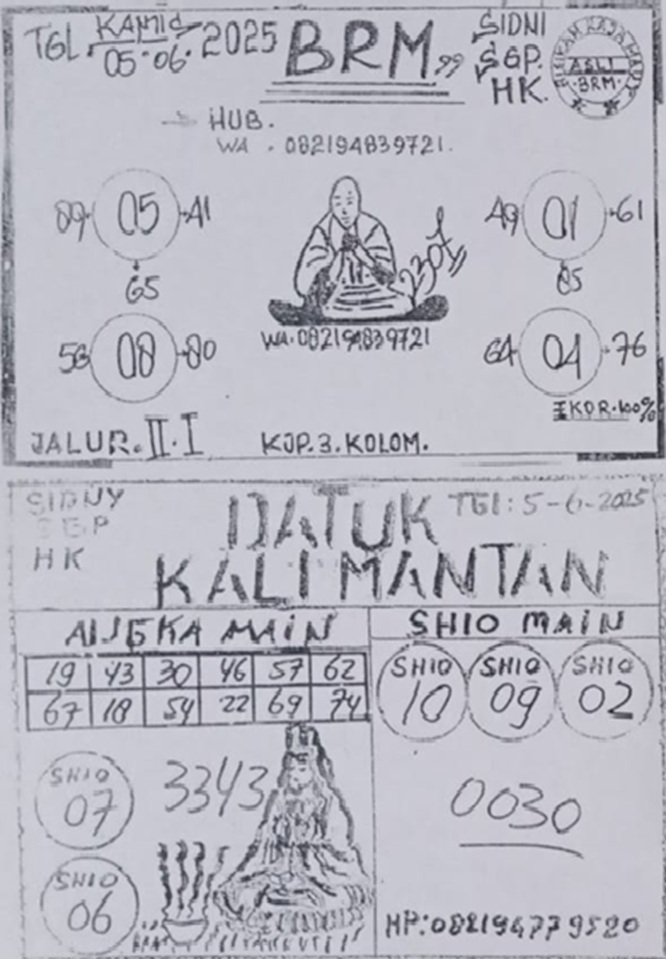 TGL. KAMIS 05-06-2025
BRM.99
SIDNI
SGP.
HK.
ASLI
BRM.
HUB.
WA . 082194839721.
89 05 41
65
49 01 61
85
WA.082194839721
56 08 80
64 04 76
KDR.100%
JALUR.II.I
KJP.3.KOLOM.
SIDNY
SGP
HK
DATUK
TGl:5-6-2025
KALIMANTAN
ANGKA MAIN
SHIO MAIN
19 43 30 46 57 62
67 18 54 22 69 74
SHIO 10
SHIO 09
SHIO 02
SHIO 07
3343
0030
SHIO 06
HP:082194779520